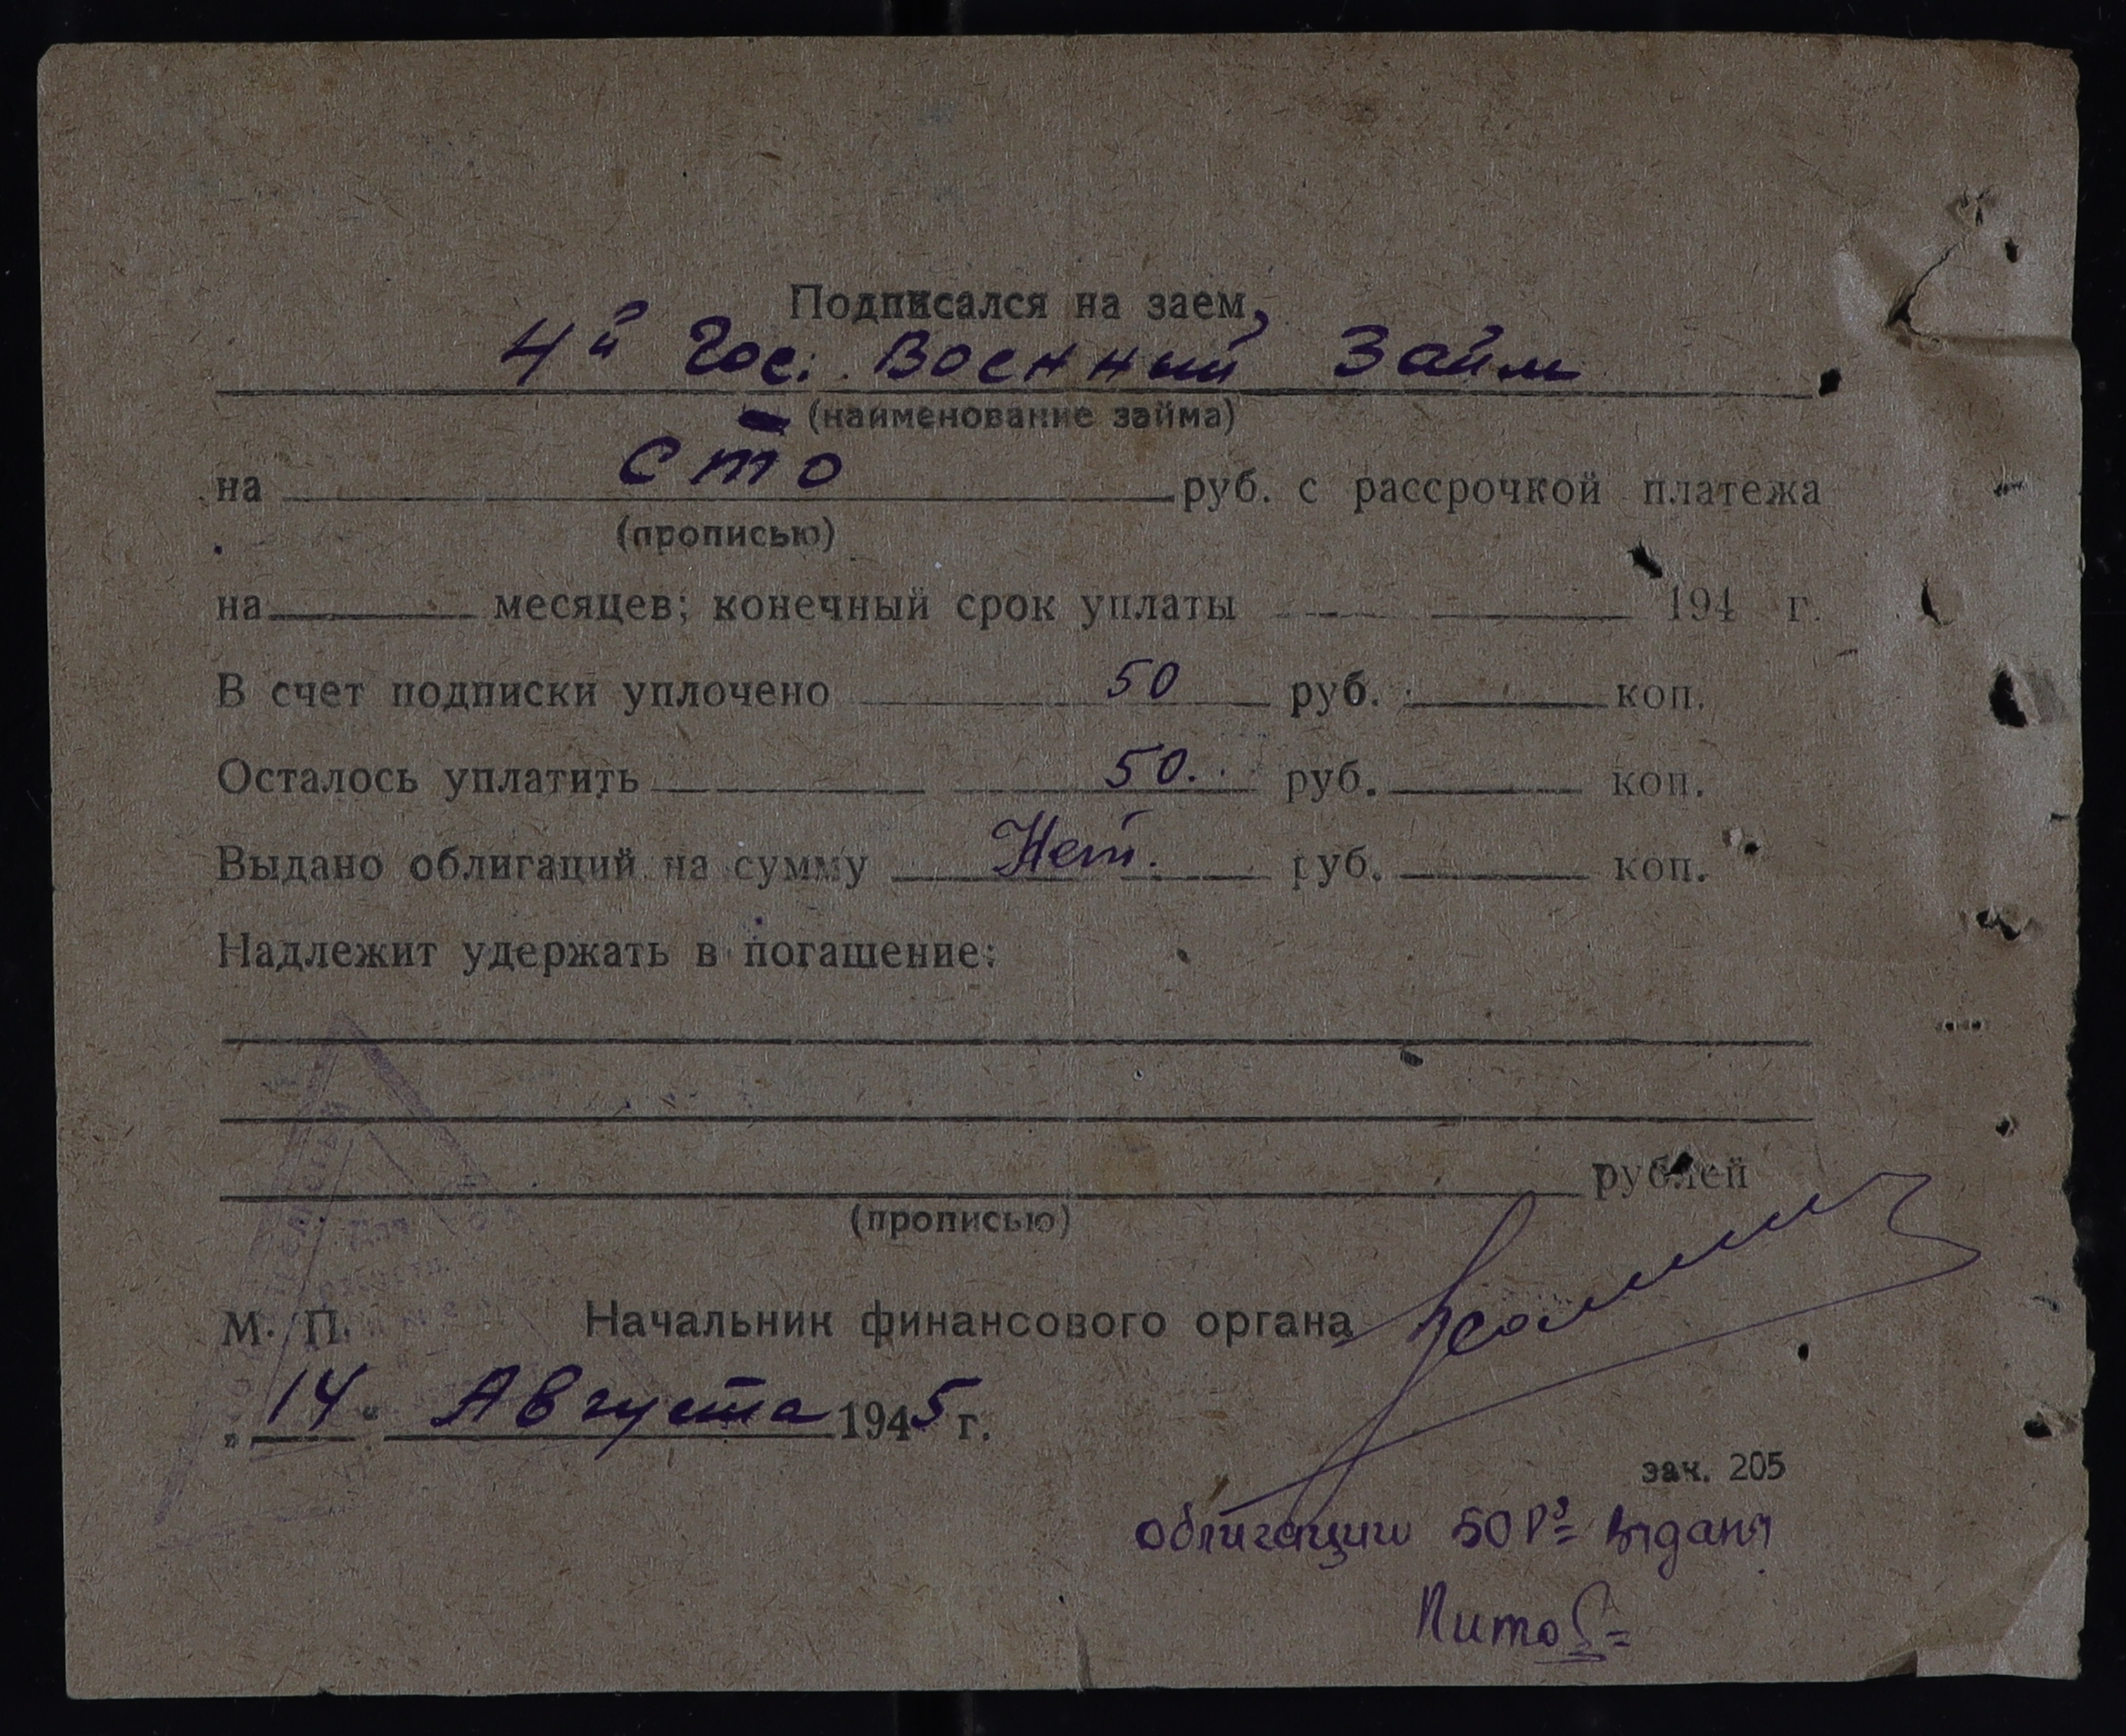 Подписался на заем,
4й Гос. Военный Займ
(наименование займа)
на сто руб. с рассрочкой платежа
(прописью)
на месяцев; конечный срок уплаты 194 г.
В счет подписки уплочено 50 руб. коп.
Осталось уплатить 50. руб. коп.
Выдано облигаций на сумму Нет. руб. коп.
Надлежит удержать в погашение:
рублей
(прописью)
М. П. Начальник финансового органа
„14“ Августа 1945 г.
зак. 205
облигации 50 Р= выданы